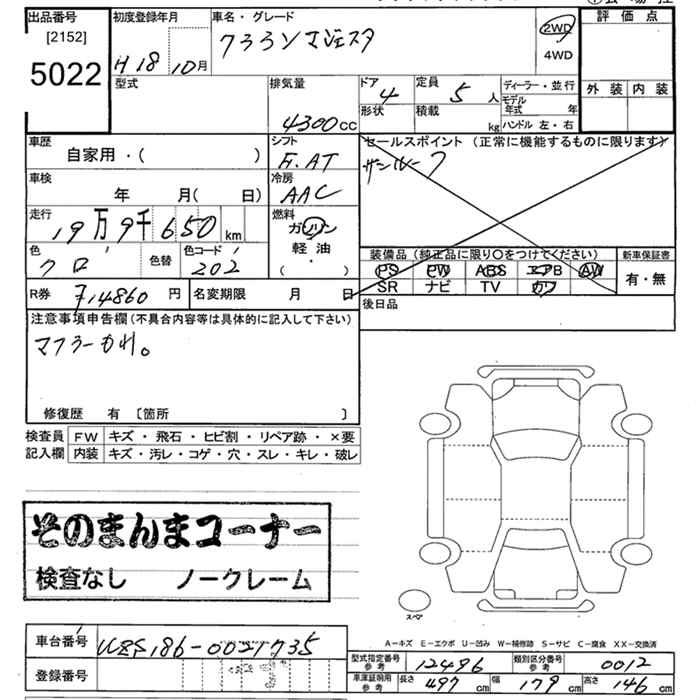 出品番号 [2152] 5022
初度登録年月 H18 10月
車名・グレード クラウンマジェスタ
2WD
4WD
評価点
型式
排気量 4300CC
ドア 4
定員 5人
形状
積載 kg
ディーラー・並行
モデル年式 年
ハンドル 左・右
外装 内装
車歴 自家用・( )
シフト F.AT
セールスポイント (正常に機能するものに限ります)
サンルーフ
車検 年 月( 日)
冷房 AAC
走行 19万9千650km
燃料 ガソリン
軽油
・
( )
色 クロ 色替
色コード 202
装備品 (純正品に限り○をつけてください)
PS PW ABS エアB AW
SR ナビ TV カワ
新車保証書
有・無
R券 14860円
名変期限 月 日
後日品
注意事項申告欄(不具合内容等は具体的に記入して下さい)
マフラーカイ。
修復歴 有 〔箇所 〕
検査員 FW キズ・飛石・ヒビ割・リペア跡・×要
記入欄 内装 キズ・汚レ・コゲ・穴・スレ・キレ・破レ
そのまんまコーナー
検査なし ノークレーム
スペア
A-キズ E-エクボ U-凹み W-補修跡 S-サビ C-腐食 XX-交換済
車台番号 UZS186-0021735
登録番号
型式指定番号 参考 12496
類別区分番号 参考 0012
車庫証明用 参考 長さ 497cm 幅 179cm 高さ 146cm